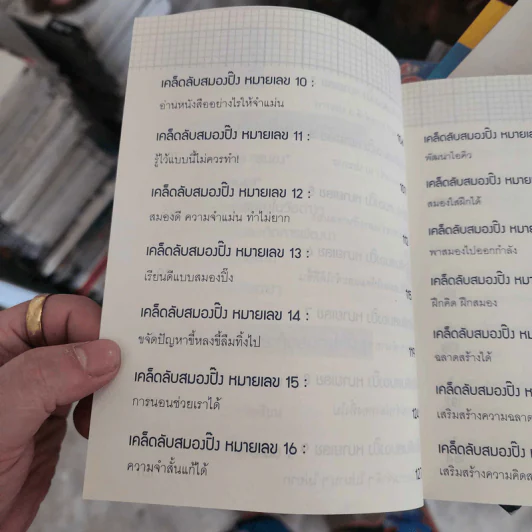 เคล็ดลับสมองปิ๊ง หมายเลข 10 :
อ่านหนังสืออย่างไรให้จำแม่น
เคล็ดลับสมองปิ๊ง หมายเลข 11 :
รู้ไว้แบบนี้ไม่ควรทำ!
เคล็ดลับสมองปิ๊ง หมายเลข 12 :
สมองดี ความจำแม่น ทำไม่ยาก
เคล็ดลับสมองปิ๊ง หมายเลข 13 :
เรียนดีแบบสมองปิ๊ง
เคล็ดลับสมองปิ๊ง หมายเลข 14 :
ขจัดปัญหาขี้หลงขี้ลืมทิ้งไป
เคล็ดลับสมองปิ๊ง หมายเลข 15 :
การนอนช่วยเราได้
เคล็ดลับสมองปิ๊ง หมายเลข 16 :
ความจำสั้นแก้ได้
เคล็ดลับสมองปิ๊ง
พัฒนาไอคิว
เคล็ดลับสมองปิ๊ง
สมองใสฝึกได้
เคล็ดลับสมองปิ๊ง
พาสมองไปออกกำลัง
เคล็ดลับสมองปิ๊ง
ฝึกคิด ฝึกสมอง
เคล็ดลับสมองปิ๊ง
ฉลาดสร้างได้
เคล็ดลับสมองปิ๊ง
เสริมสร้างความฉลาด
เคล็ดลับสมองปิ๊ง
เสริมสร้างความคิด